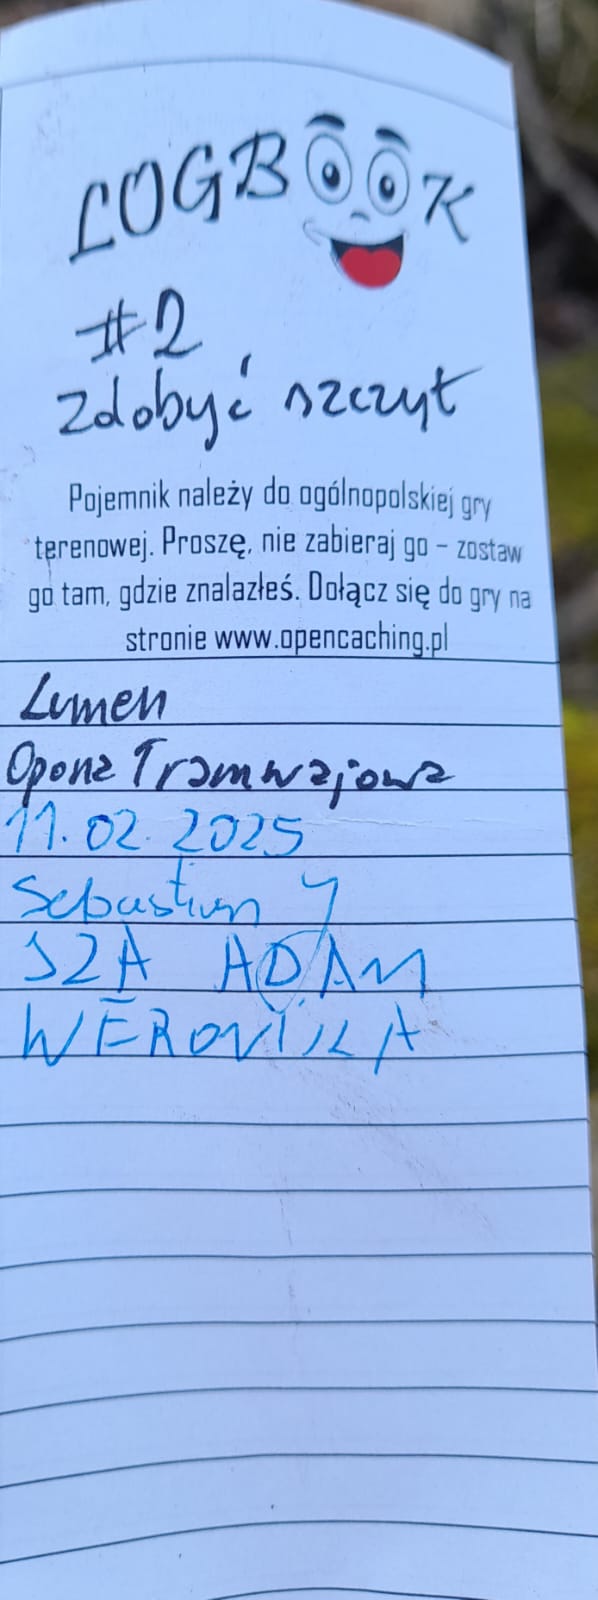 LOGBOOK
#2
Zdobyć szczyt
Pojemnik należy do ogólnopolskiej gry
terenowej. Proszę, nie zabieraj go – zostaw
go tam, gdzie znalazłeś. Dołącz się do gry na
stronie www.opencaching.pl
Lumen
Opona Tramwajowa
11.02.2025
Sebastian
ADAM
WERONIKA